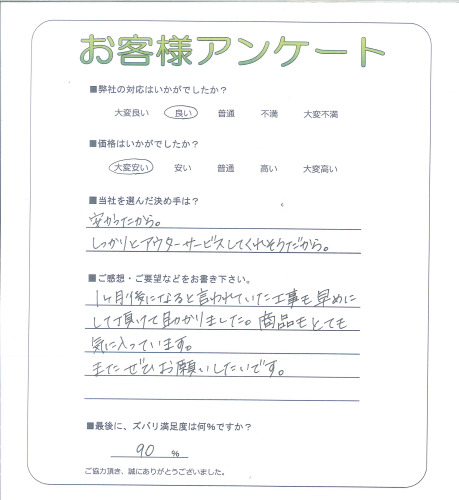 お客様アンケート
■弊社の対応はいかがでしたか？
大変良い　良い　普通　不満　大変不満
■価格はいかがでしたか？
大変安い　安い　普通　高い　大変高い
■当社を選んだ決め手は？
安かったから。
しっかりとアウターサービスしてくれそうだから。
■ご感想・ご要望などをお書き下さい。
1ヶ月後になると言われていた工事も早めに
して頂けて助かりました。商品もとても
気に入っています。
またぜひお願いしたいです。
■最後に、ズバリ満足度は何%ですか？
90 %
ご協力頂き、誠にありがとうございました。